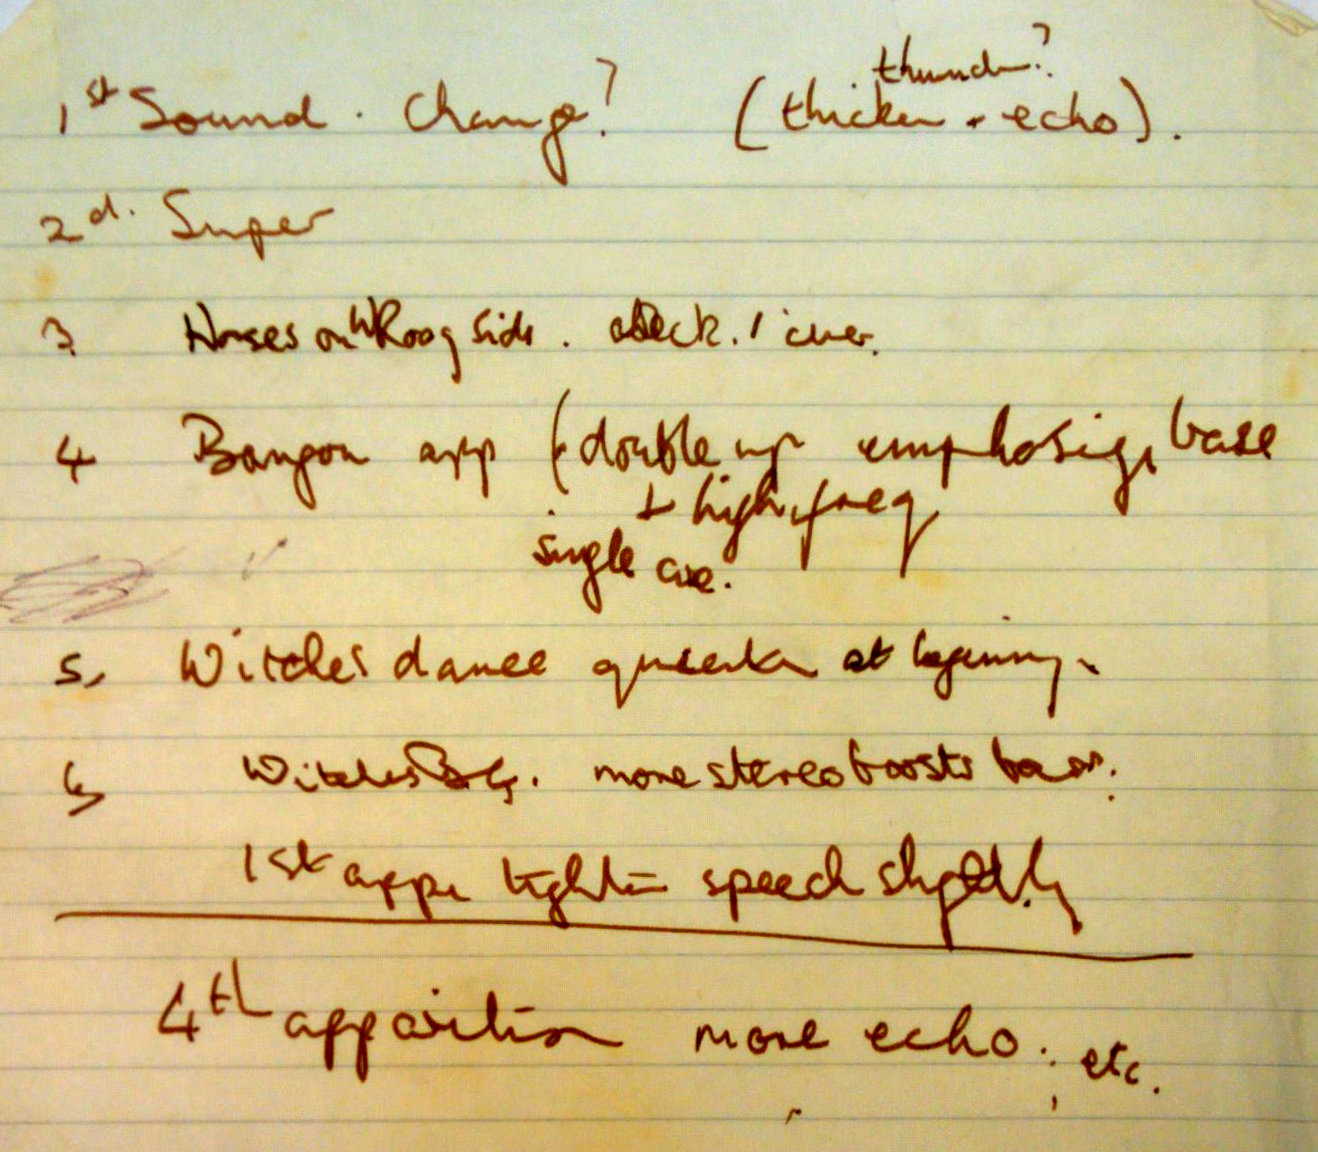 thunder?
1st Sound. Change? (thicker + echo).
2d. Super
3 Horses on wRong side. check. 1 cue.
4 app (double up emphasig base
+ high freq
single cue.
5, Witches dance at beginning.
6 Witches more stereo boosts
1st appn tighten speech slightly
4th apparition more echo. etc.